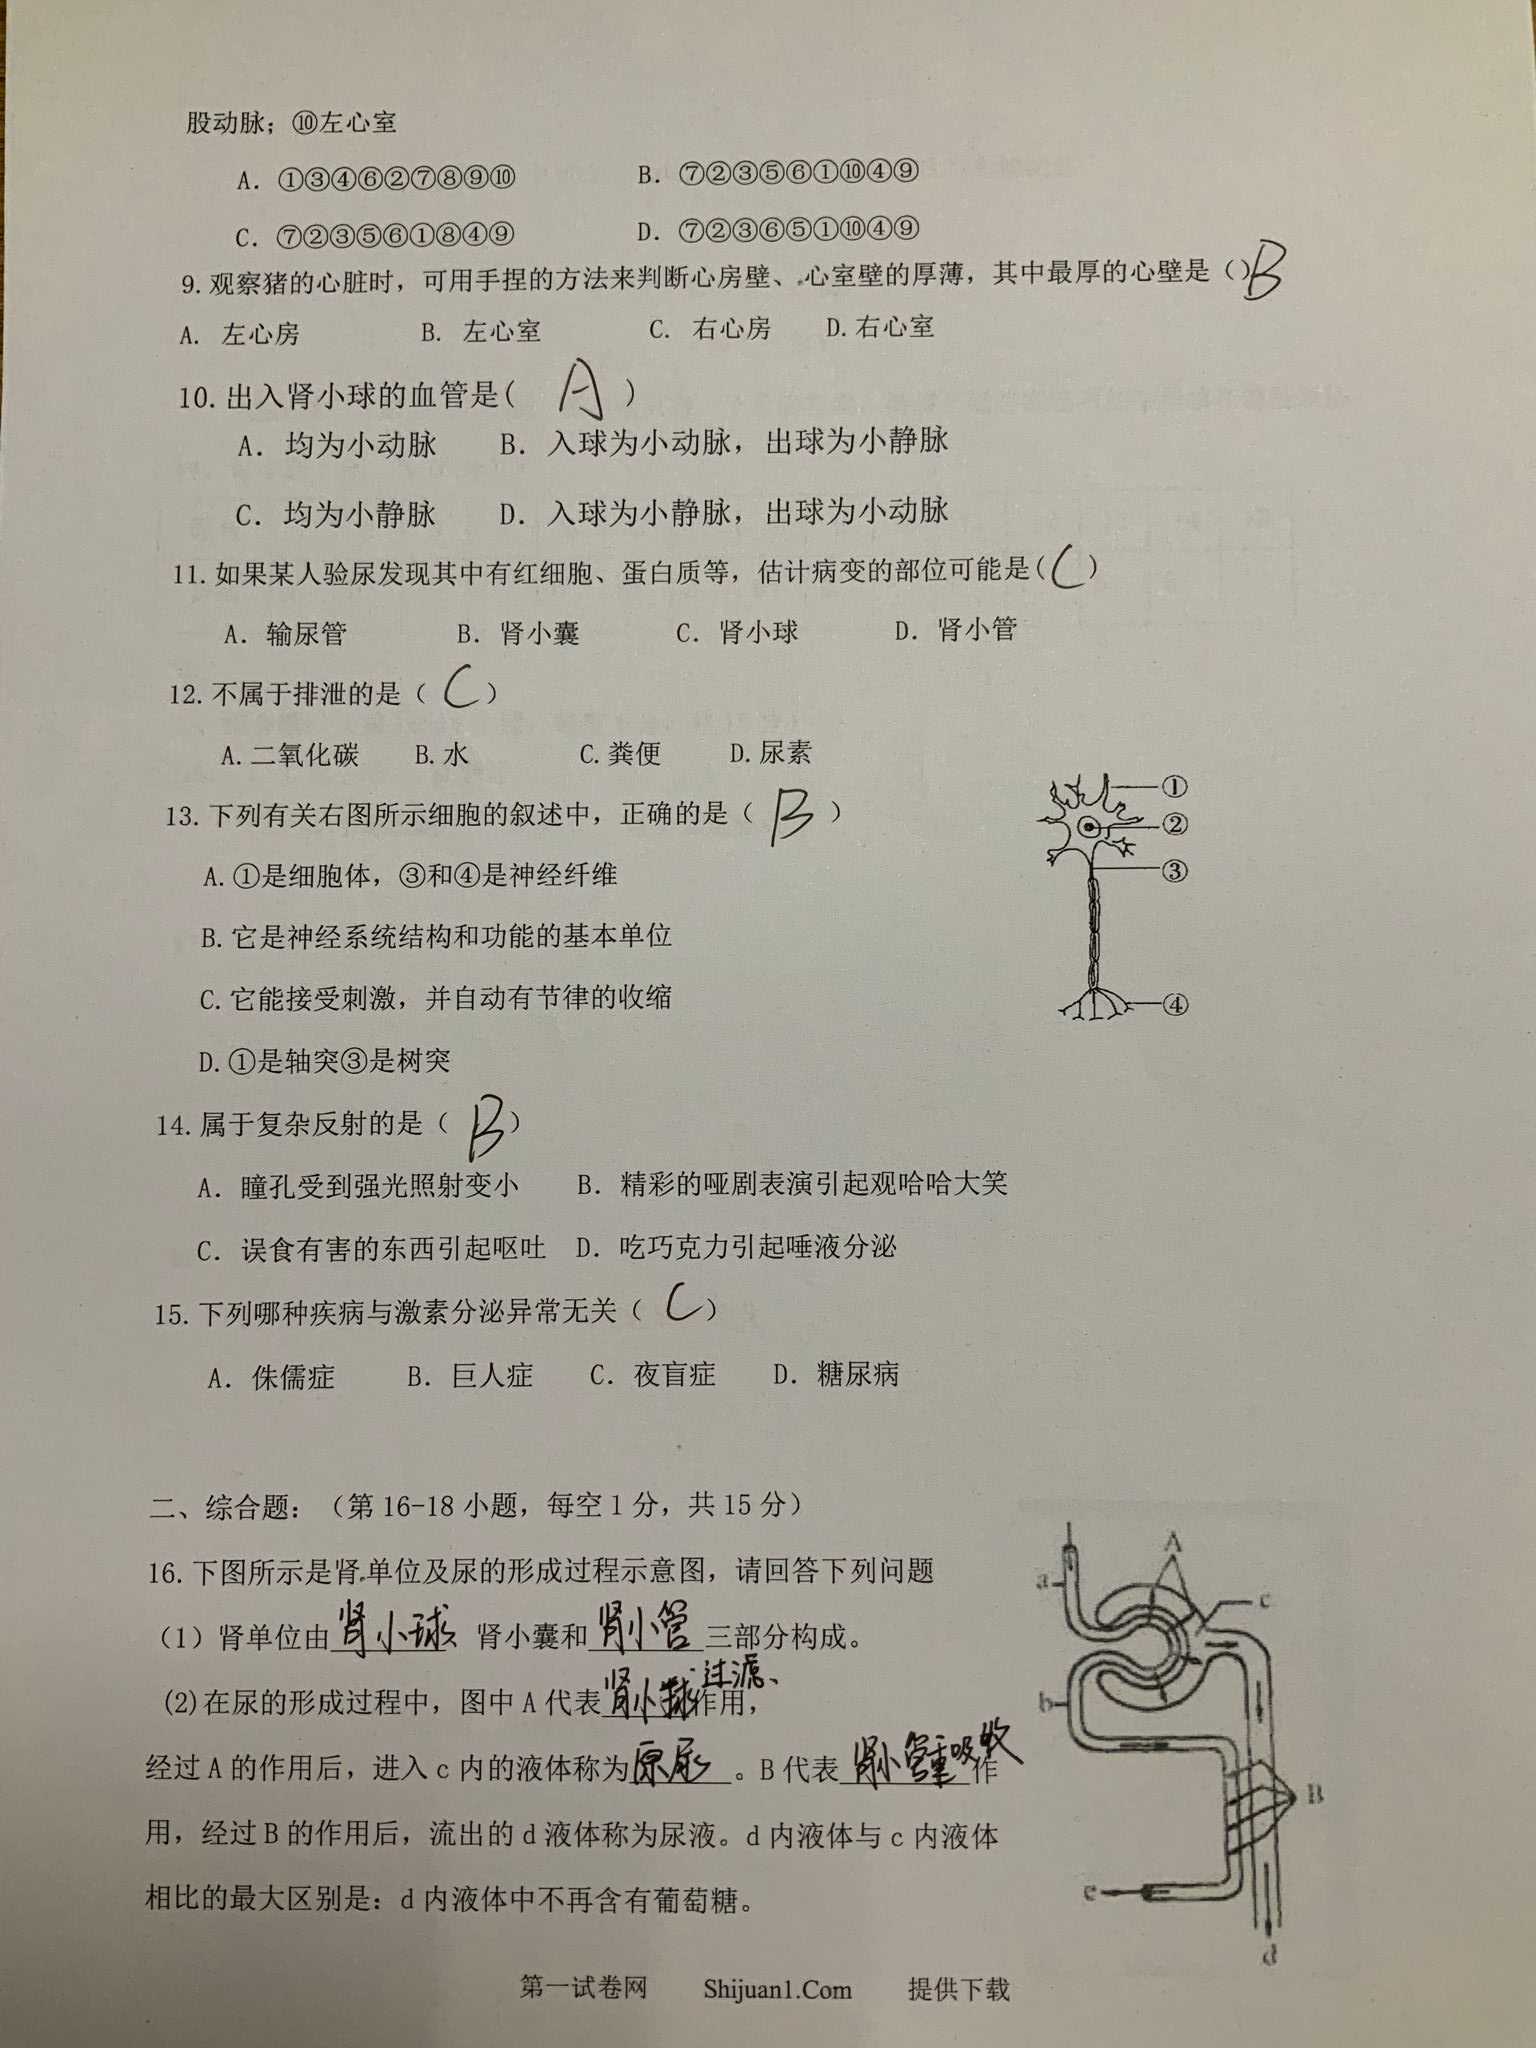 股动脉；⑩左心室
A. ①③④⑥②⑦⑧⑨⑩ B. ⑦②③⑤⑥①⑩④⑨
C. ⑦②③⑤⑥①⑧④⑨ D. ⑦②③⑥⑤①⑩④⑨
9.观察猪的心脏时，可用手捏的方法来判断心房壁、心室壁的厚薄，其中最厚的心壁是（）B
A. 左心房 B. 左心室 C. 右心房 D.右心室
10.出入肾小球的血管是( A )
A. 均为小动脉 B. 入球为小动脉，出球为小静脉
C. 均为小静脉 D. 入球为小静脉，出球为小动脉
11.如果某人验尿发现其中有红细胞、蛋白质等，估计病变的部位可能是(C)
A. 输尿管 B. 肾小囊 C. 肾小球 D. 肾小管
12.不属于排泄的是（ C ）
A.二氧化碳 B.水 C.粪便 D.尿素
13.下列有关右图所示细胞的叙述中，正确的是（ B ）
A.①是细胞体，③和④是神经纤维
B.它是神经系统结构和功能的基本单位
C.它能接受刺激，并自动有节律的收缩
D.①是轴突③是树突
①
②
③
④
14.属于复杂反射的是（ B ）
A. 瞳孔受到强光照射变小 B. 精彩的哑剧表演引起观哈哈大笑
C. 误食有害的东西引起呕吐 D. 吃巧克力引起唾液分泌
15.下列哪种疾病与激素分泌异常无关（ C ）
A. 侏儒症 B. 巨人症 C. 夜盲症 D. 糖尿病
二、综合题：（第16-18小题，每空1分，共15分）
16.下图所示是肾单位及尿的形成过程示意图，请回答下列问题
（1）肾单位由肾小球 肾小囊和肾小管三部分构成。
(2)在尿的形成过程中，图中A代表肾小球过滤、作用，
经过A的作用后，进入c内的液体称为原尿。B代表肾小管重吸收作
用，经过B的作用后，流出的d液体称为尿液。d内液体与c内液体
相比的最大区别是：d内液体中不再含有葡萄糖。
A
a
c
b
B
e
d
第一试卷网 Shijuan1.Com 提供下载